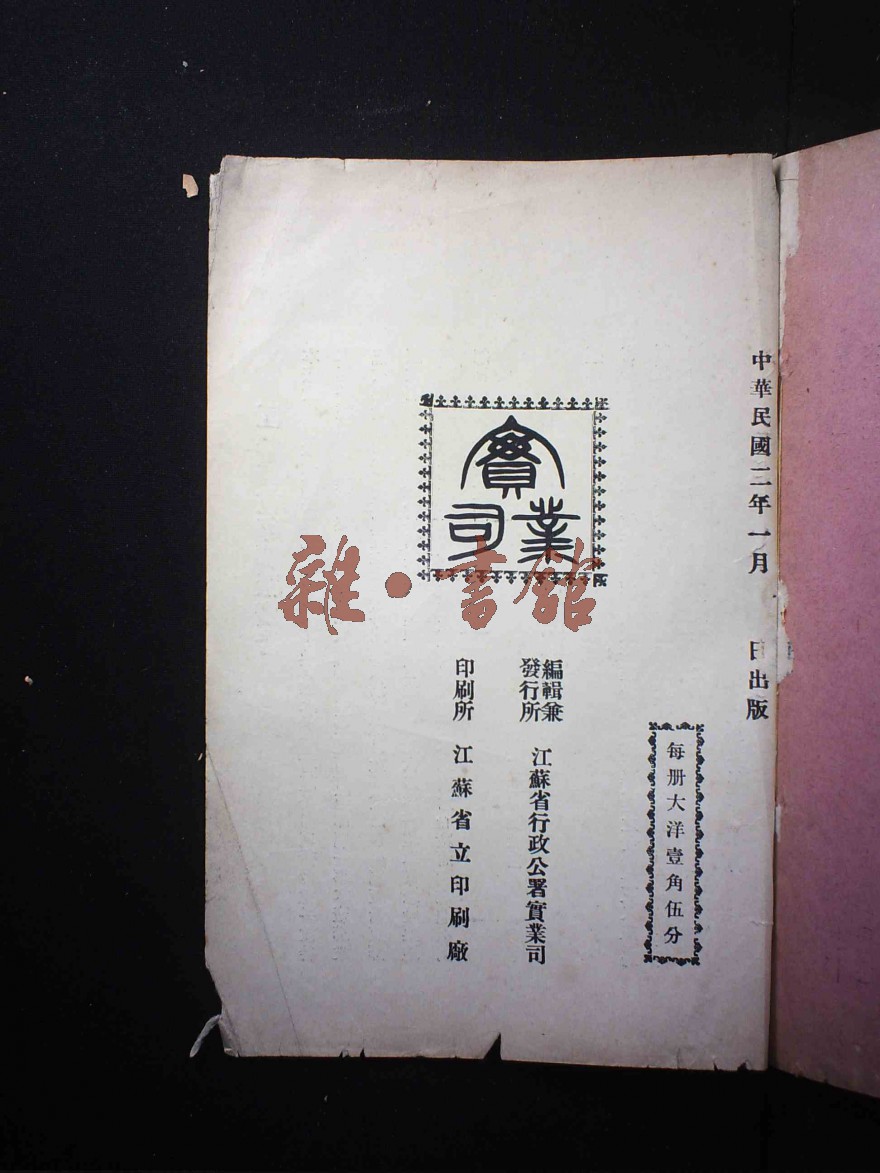 中華民國三年一月　日出版
每册大洋壹角伍分
編輯兼
發行所
江蘇省行政公署實業司
印刷所　江蘇省立印刷廠
實業司
雜·書館